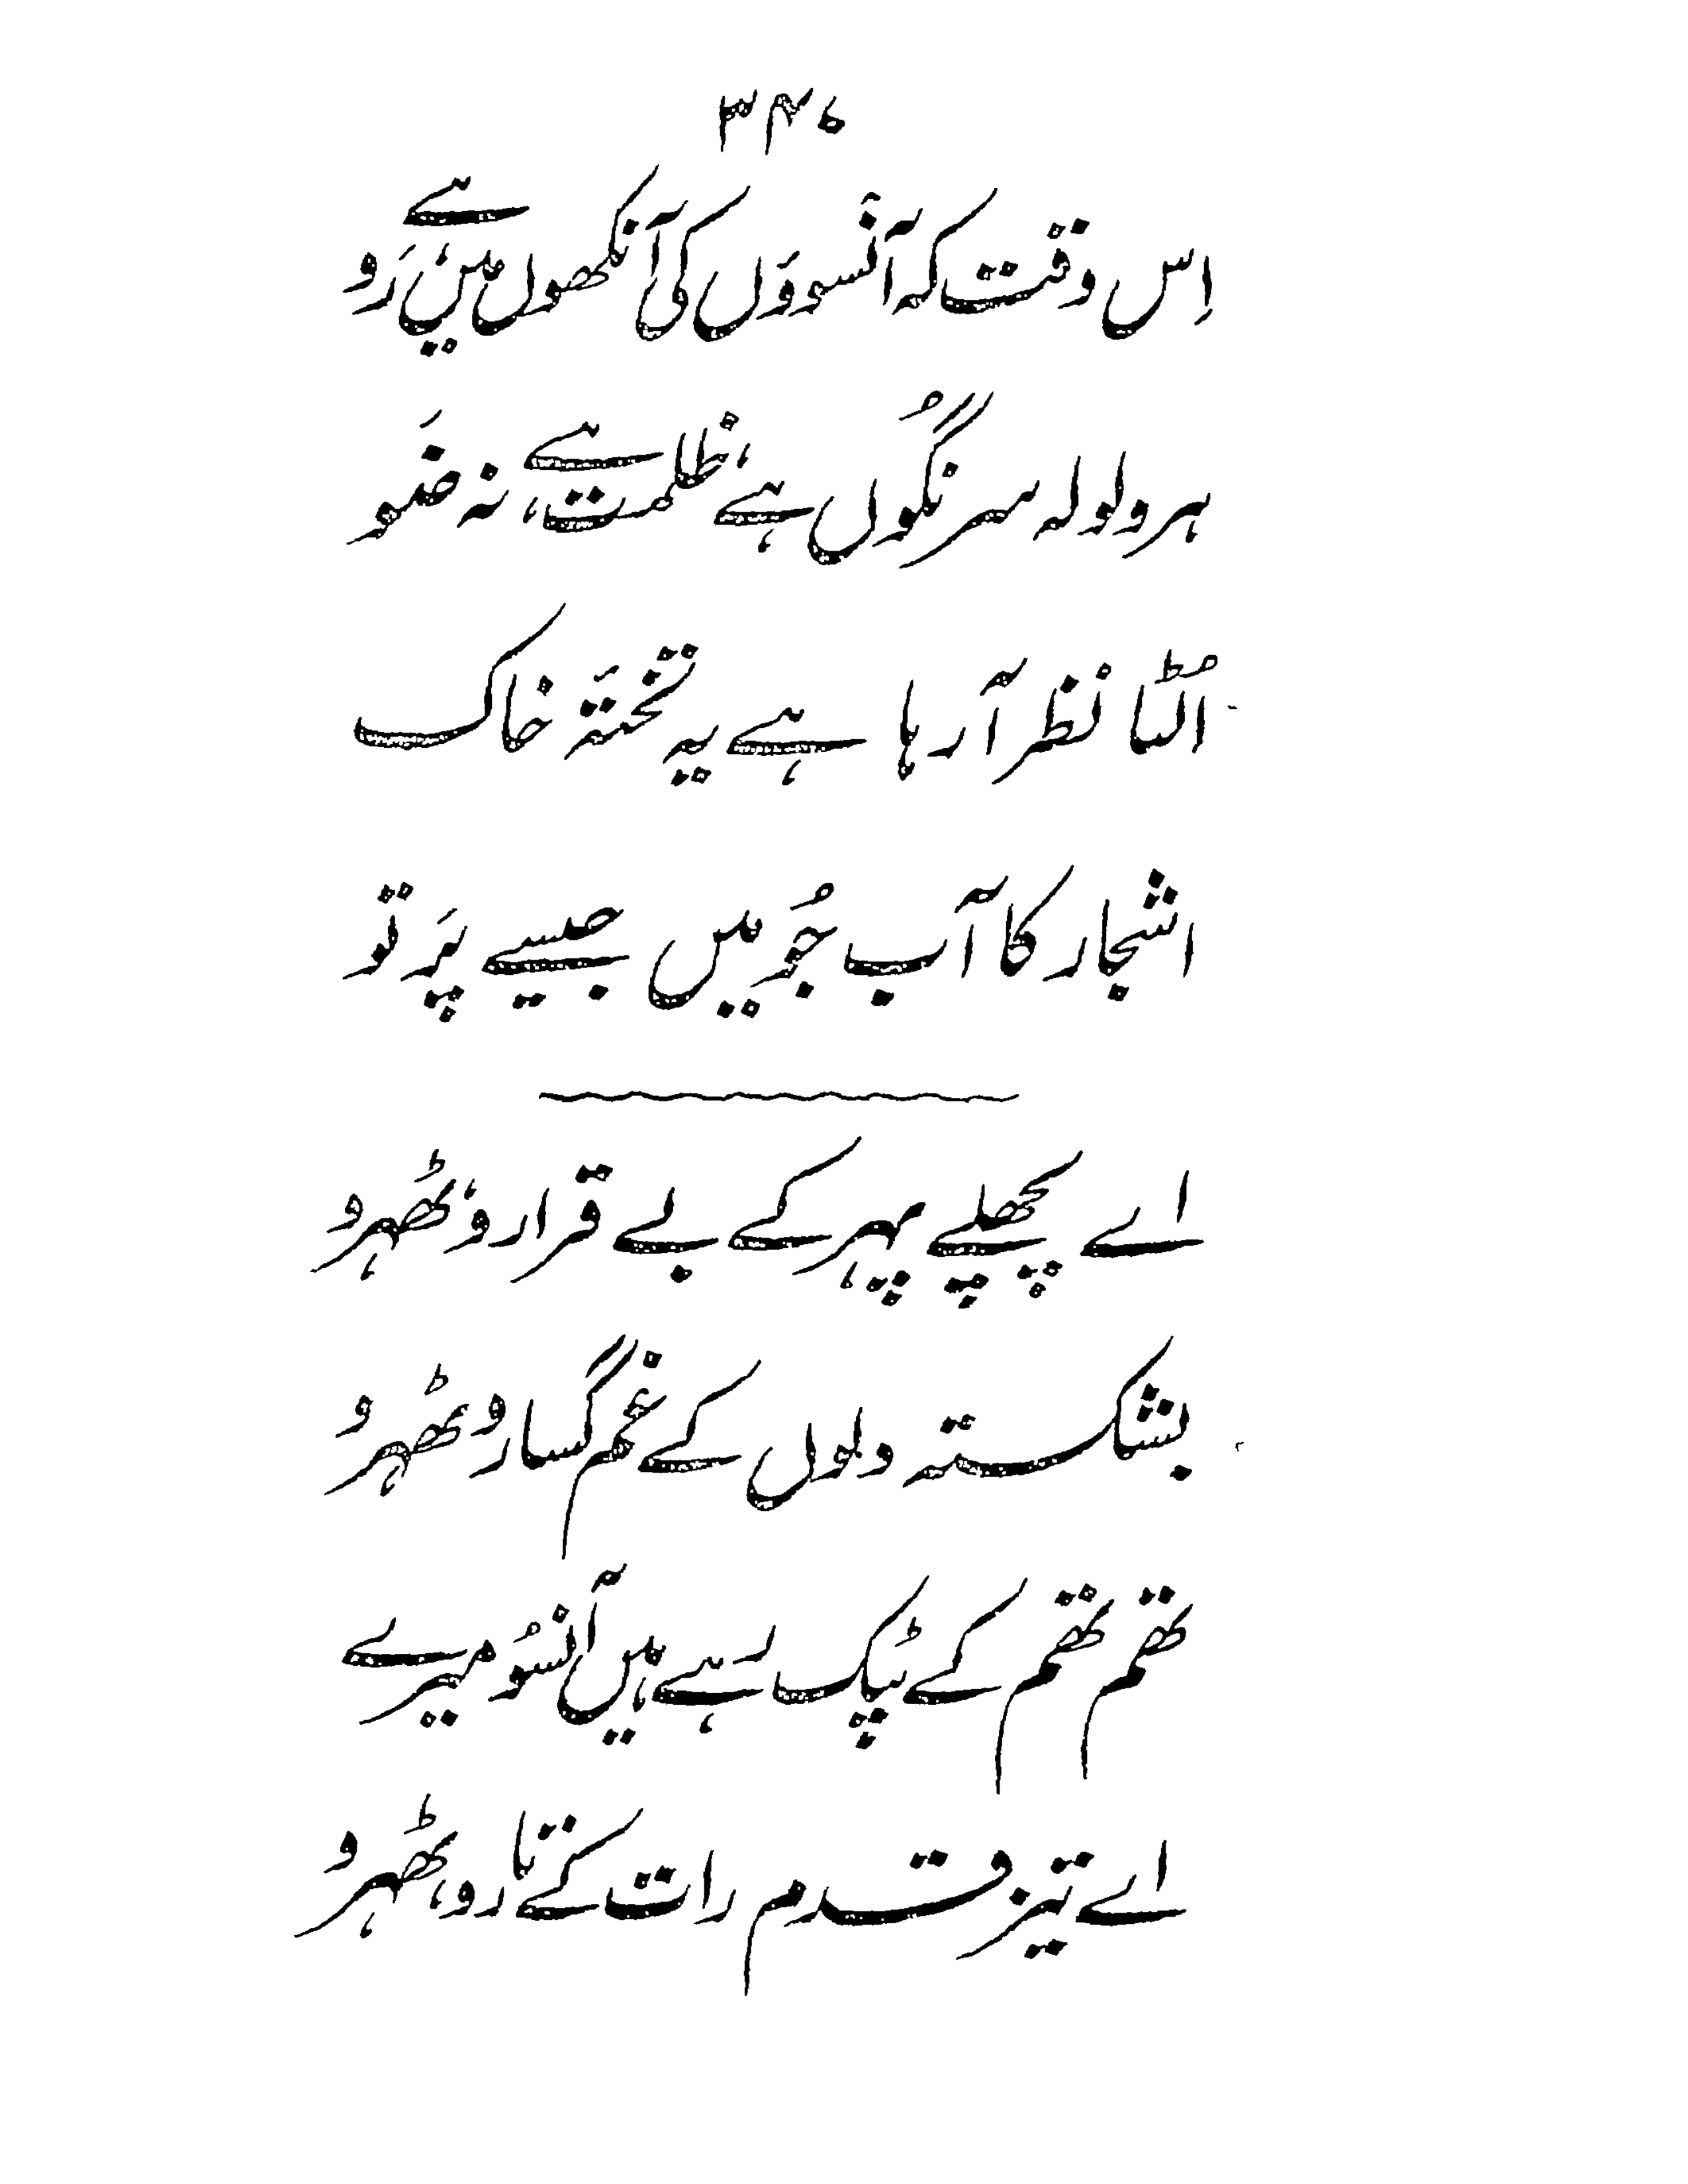 ۳۴۰
اِس وقت کہ آنسوؤں کی آنکھوں میں ہے رَو
ہر ولولہ سرنگُوں ہے، ظلمت ہے، نہ ضَو
اُلٹا نظر آ رہا ہے یہ تختۂ خاک
اشجار کا آب جُو میں جیسے پَرتو
اے پچھلے پہر کے بے قرارو، ٹھہرو
بشکستہ دلوں کے غم گسارو ٹھہرو
تھم تھم کے ٹپک رہے ہیں آنسُو میرے
اے تیز قدم رات کے تارو، ٹھہرو